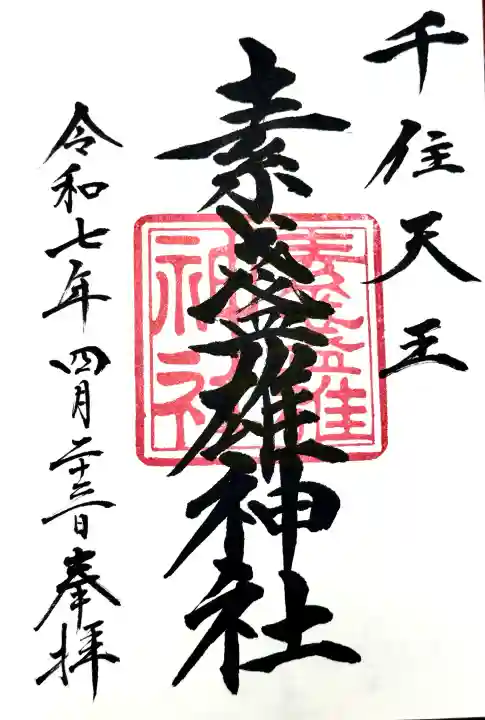 千住天王
素盞雄神社
素盞雄神社
令和七年四月二十三日奉拝